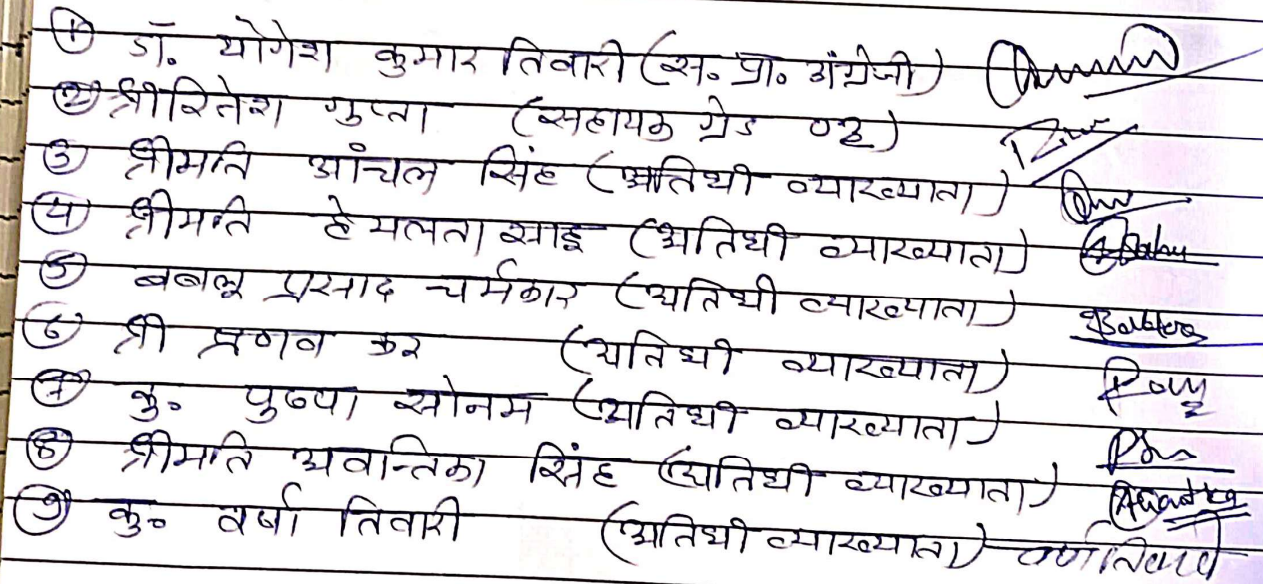 ① डॉ. योगेश कुमार तिवारी (स. प्रा. अंग्रेजी)
② श्री रितेश गुप्ता (सहायक ग्रेड 03)
③ श्रीमति आंचल सिंह (अतिथी व्याख्याता)
④ श्रीमति हेमलता साहू (अतिथी व्याख्याता) Sahu
⑤ बबलू प्रसाद चर्मकार (अतिथी व्याख्याता)
⑥ श्री प्रणव कर (अतिथी व्याख्याता)
⑦ कु. पुष्पा सोनम (अतिथी व्याख्याता)
⑧ श्रीमति अवन्तिका सिंह (अतिथी व्याख्याता)
⑨ कु. वर्षा तिवारी (अतिथी व्याख्याता) वर्षा तिवारी